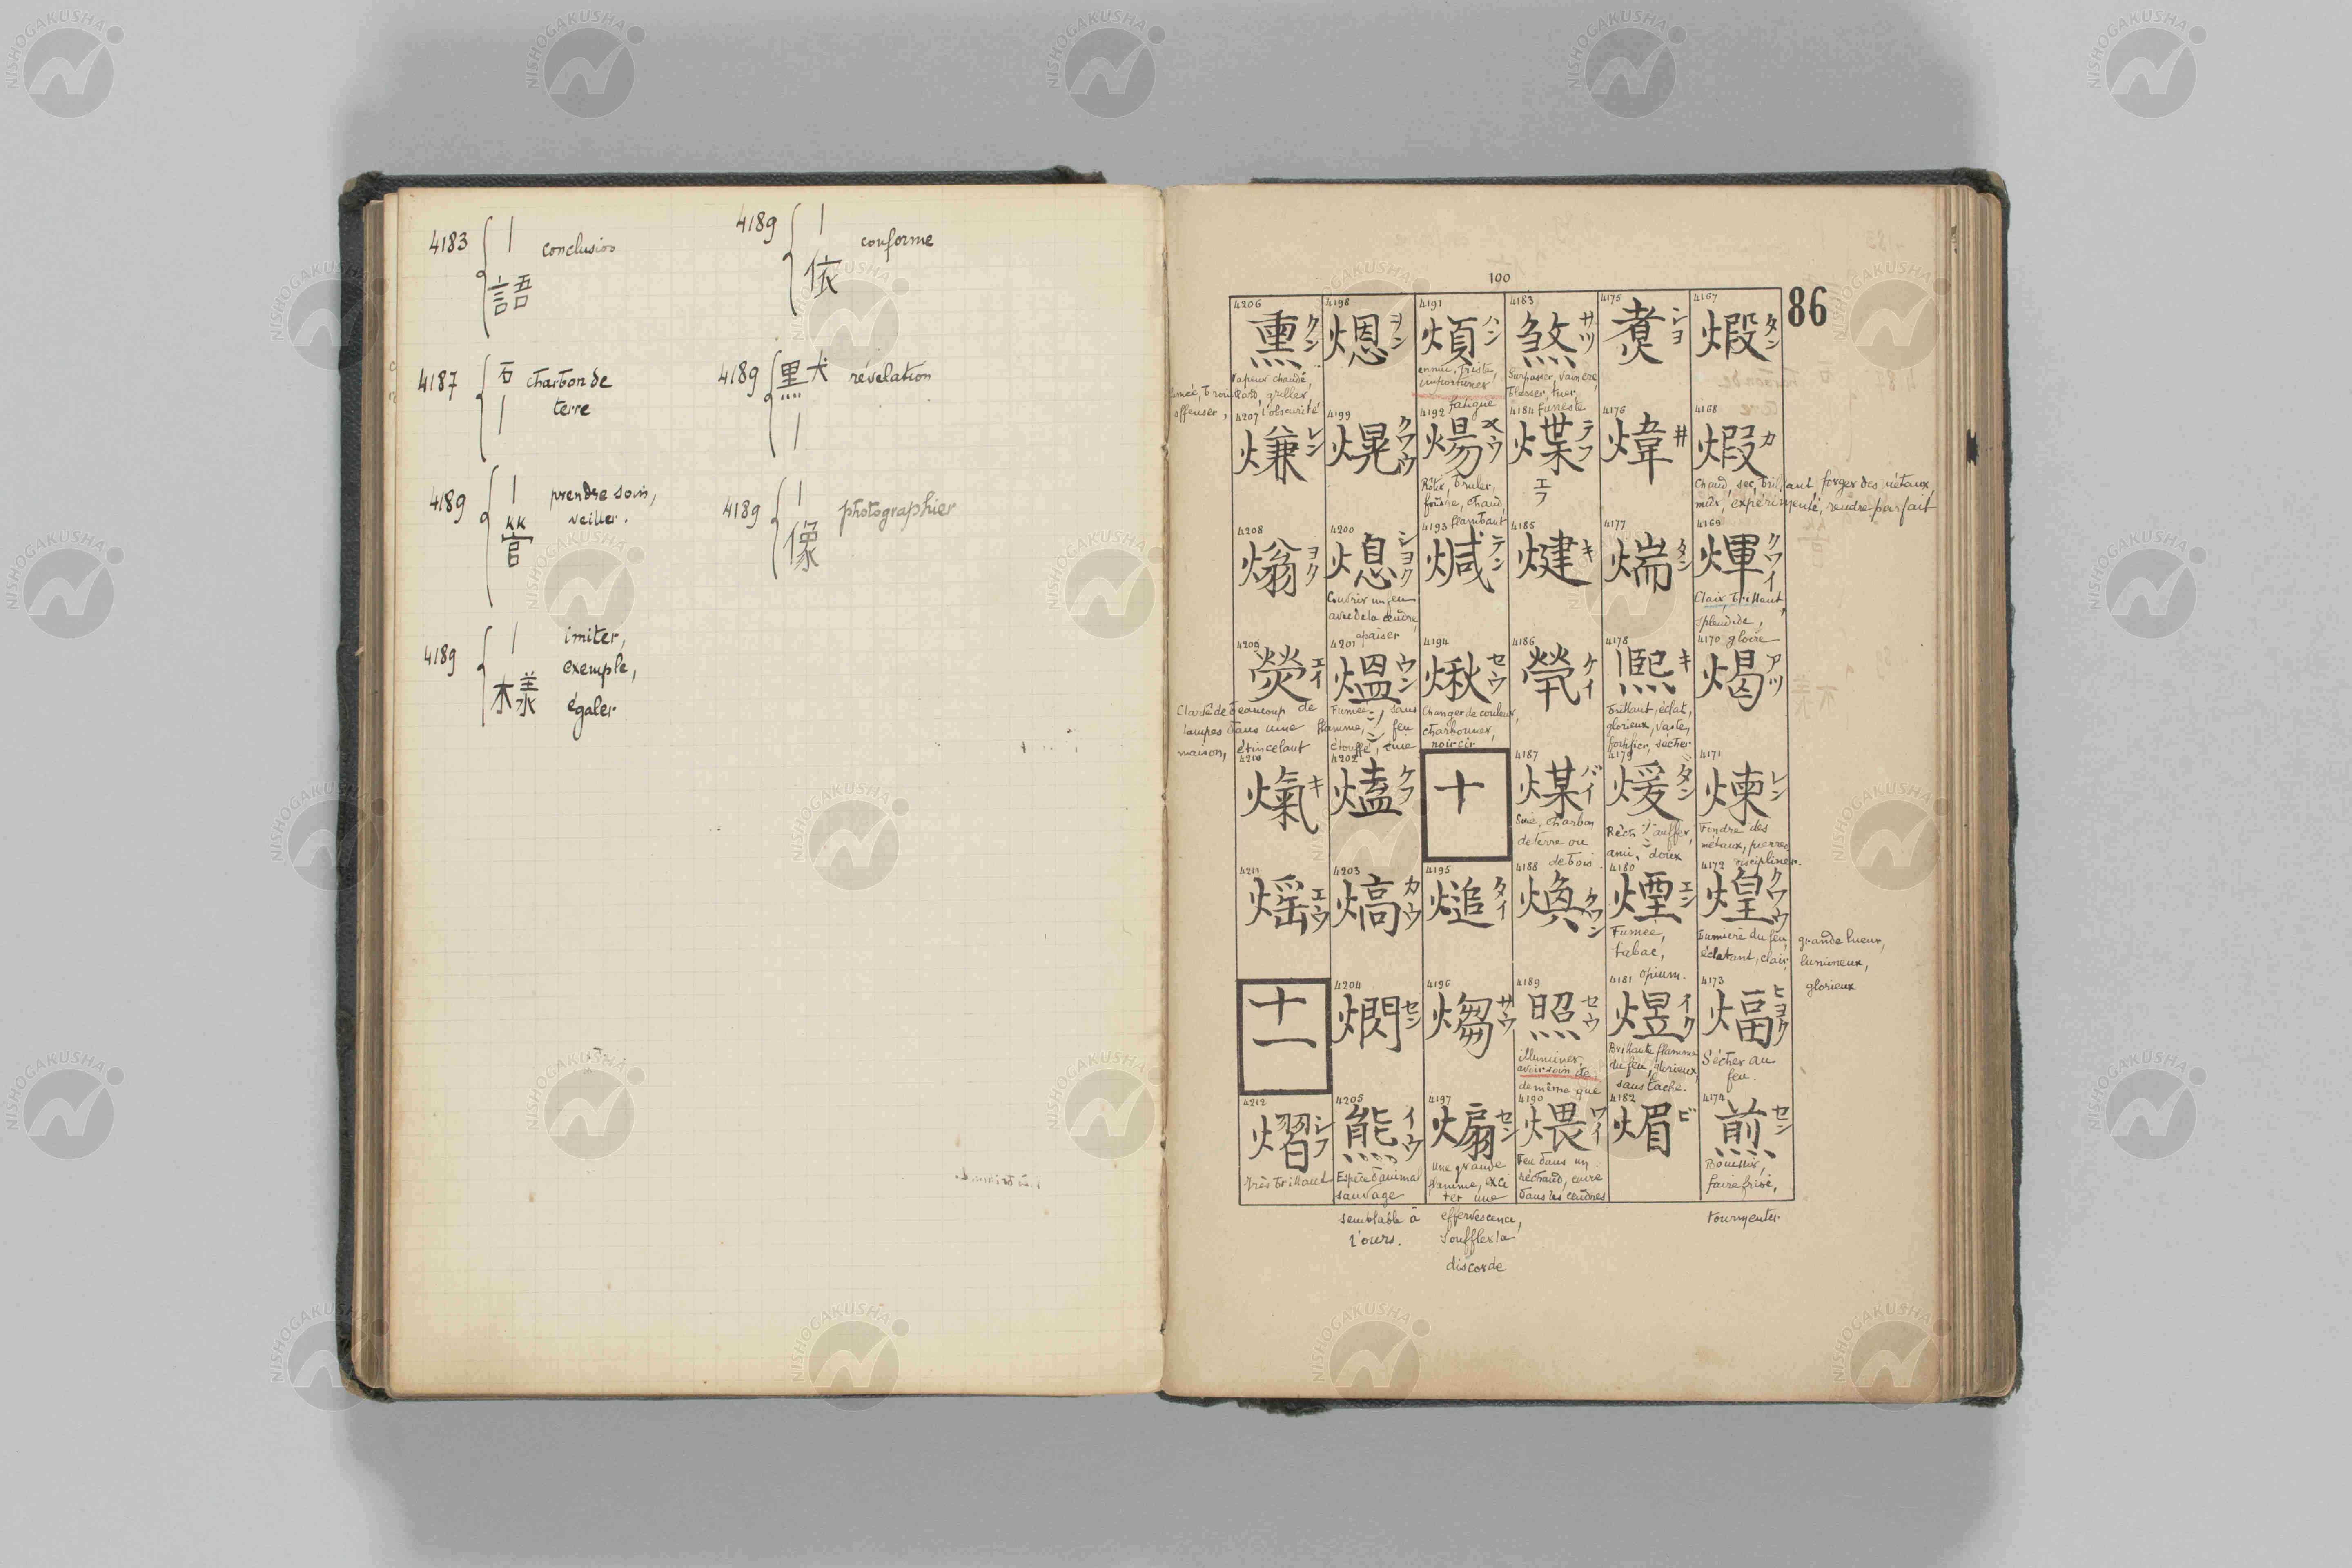 4183 | conclusion
語
4187 石 charbon de
| terre
4189 | prendre soin,
veiller.
管
4189 | imiter,
exemple,
様 égaler
4189 | conforme
依
4189 黒犬 révélation
|
4189 | photographier
像
190
86
4167
煅 タン
4168
煆 カ
Chaud, sec, brillant, forger des métaux
mûr, expérimenté, rendre parfait
4169
煇 クワイ
Clair, brillant,
splendide,
gloire
4170
煬 アツ
4171
煉 レン
Fondre des
métaux, pierres
discipliner.
4172
煌 クワウ
Lumière du feu, grande lueur,
éclatant, clair, lumineux,
glorieux
4173
煏 ヒヨク
Sécher au
feu.
4174
煎 セン
Bouillir,
faire frire,
tourmenter
4175
煑 シヨ
4176
煒 ヰ
4177
煓 タン
4178
熈 キ
Brillant, éclat,
glorieux, vaste,
fortifier, sécher
4179
煖 ダン
Réchauffer,
ami, doux
4180
煙 エン
Fumée,
tabac,
opium.
4181
煜 イク
Brillante flamme
du feu, glorieux,
sans tache.
4182
煝 ビ
4183
煞 サツ
Surpasser, vaincre,
blesser, tuer,
funeste
4184
煠 テフ
エフ
4185
煡 キ
4186
煢 ケイ
4187
煤 バイ
Suie, charbon
de terre ou
de bois.
4188
煥 クワン
4189
照 セウ
illuminer,
avoir soin de,
de même que
4190
煨 ワイ
Feu dans un
réchaud, cuire
dans les cendres
4191
煩 ハン
ennui, triste,
importuner
fatigue
4192
煬 ヤウ
Rôtir, bruler,
fondre, chaud,
flambant
4193
煘 テン
4194
煍 セウ
Changer de couleur,
charbonner,
noircir
十
4195
熥 タイ
4196
煼 サウ
4197
煽 セン
Une grande
flamme, exci
ter une
effervescence,
souffler la
discorde
4198
煾 ヲン
4199
熀 クワウ
4200
熄 シヨク
Couvrir un feu
avec de la cendre,
apaiser
4201
熅 ウン
Fumée, sans
flamme, feu
étouffé, suie
4202
熆 ケフ
4203
熇 カウ
4204
熌 セン
4205
熊 イウ
Espèce d'animal
sauvage
semblable à
l'ours.
4206
熏 クン
Vapeur chaude,
fumée, brouillard, griller
offenser, l'obscurité
4207
熑 レン
4208
熻 ヨク
4209
熒 エイ
Clarté de beaucoup de
lampes dans une
maison, étincelant
4210
熂 キ
4211
熎 エウ
十一
4212
熠 シフ
Très brillant